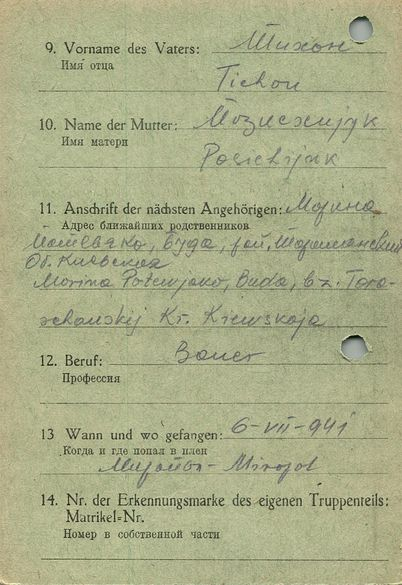 9. Vorname des Vaters: Тихон
Имя отца
Tichon
10. Name der Mutter:
Имя матери
11. Anschrift der nächsten Angehörigen: Морина
Адрес ближайших родственников
Буда,
Об. Киевская
Morina Potewjako, Buda, bz. Tora-
schanskij Kr. Kiewskaja
12. Beruf: Bauer
Профессия
13 Wann und wo gefangen: 6-VII-941
Когда и где попал в плен
14. Nr. der Erkennungsmarke des eigenen Truppenteils:
Matrikel-Nr.
Номер в собственной части